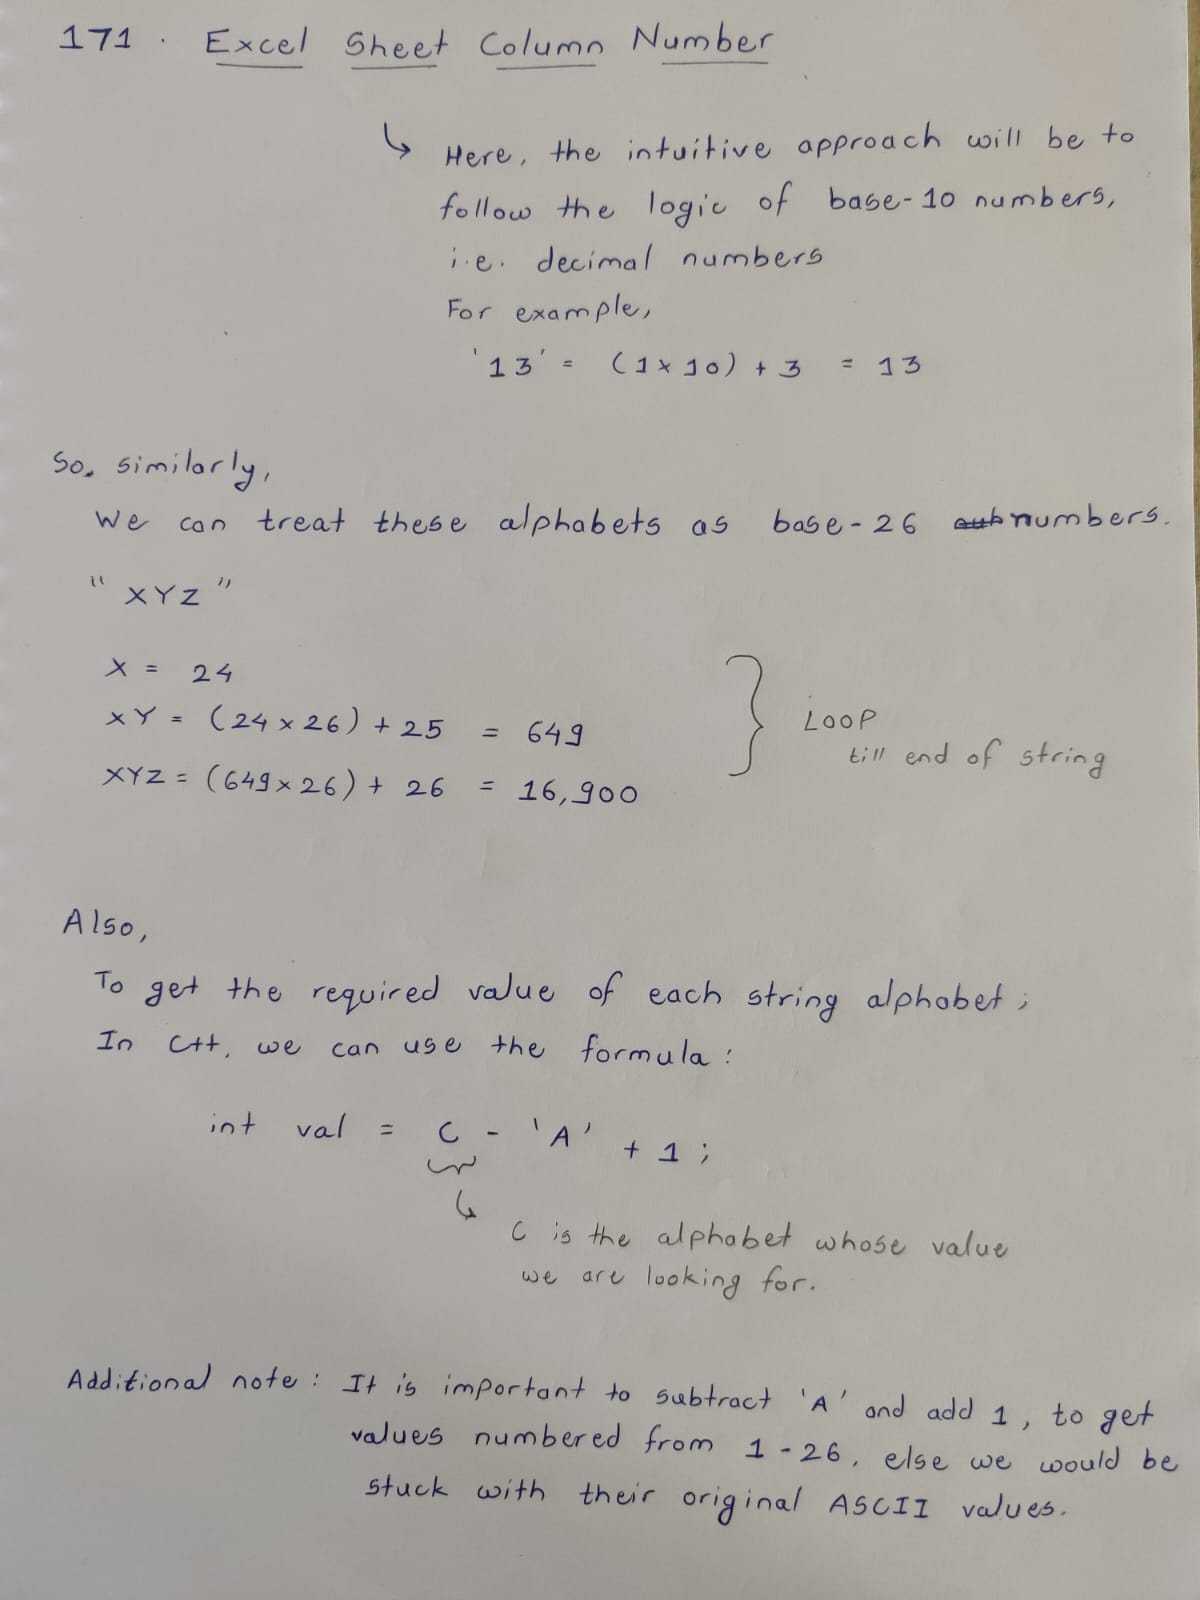 171. Excel Sheet Column Number
↳ Here, the intuitive approach will be to
follow the logic of base-10 numbers,
i.e. decimal numbers
For example,
'13' = (1 × 10) + 3 = 13
So, similarly,
We can treat these alphabets as base-26 numbers.
"XYZ"
X = 24
XY = (24 × 26) + 25 = 649
XYZ = (649 × 26) + 26 = 16,900
} LOOP
till end of string
Also,
To get the required value of each string alphabet;
In C++, we can use the formula:
int val = C - 'A' + 1;
↳ C is the alphabet whose value
we are looking for.
Additional note: It is important to subtract 'A' and add 1, to get
values numbered from 1-26, else we would be
stuck with their original ASCII values.